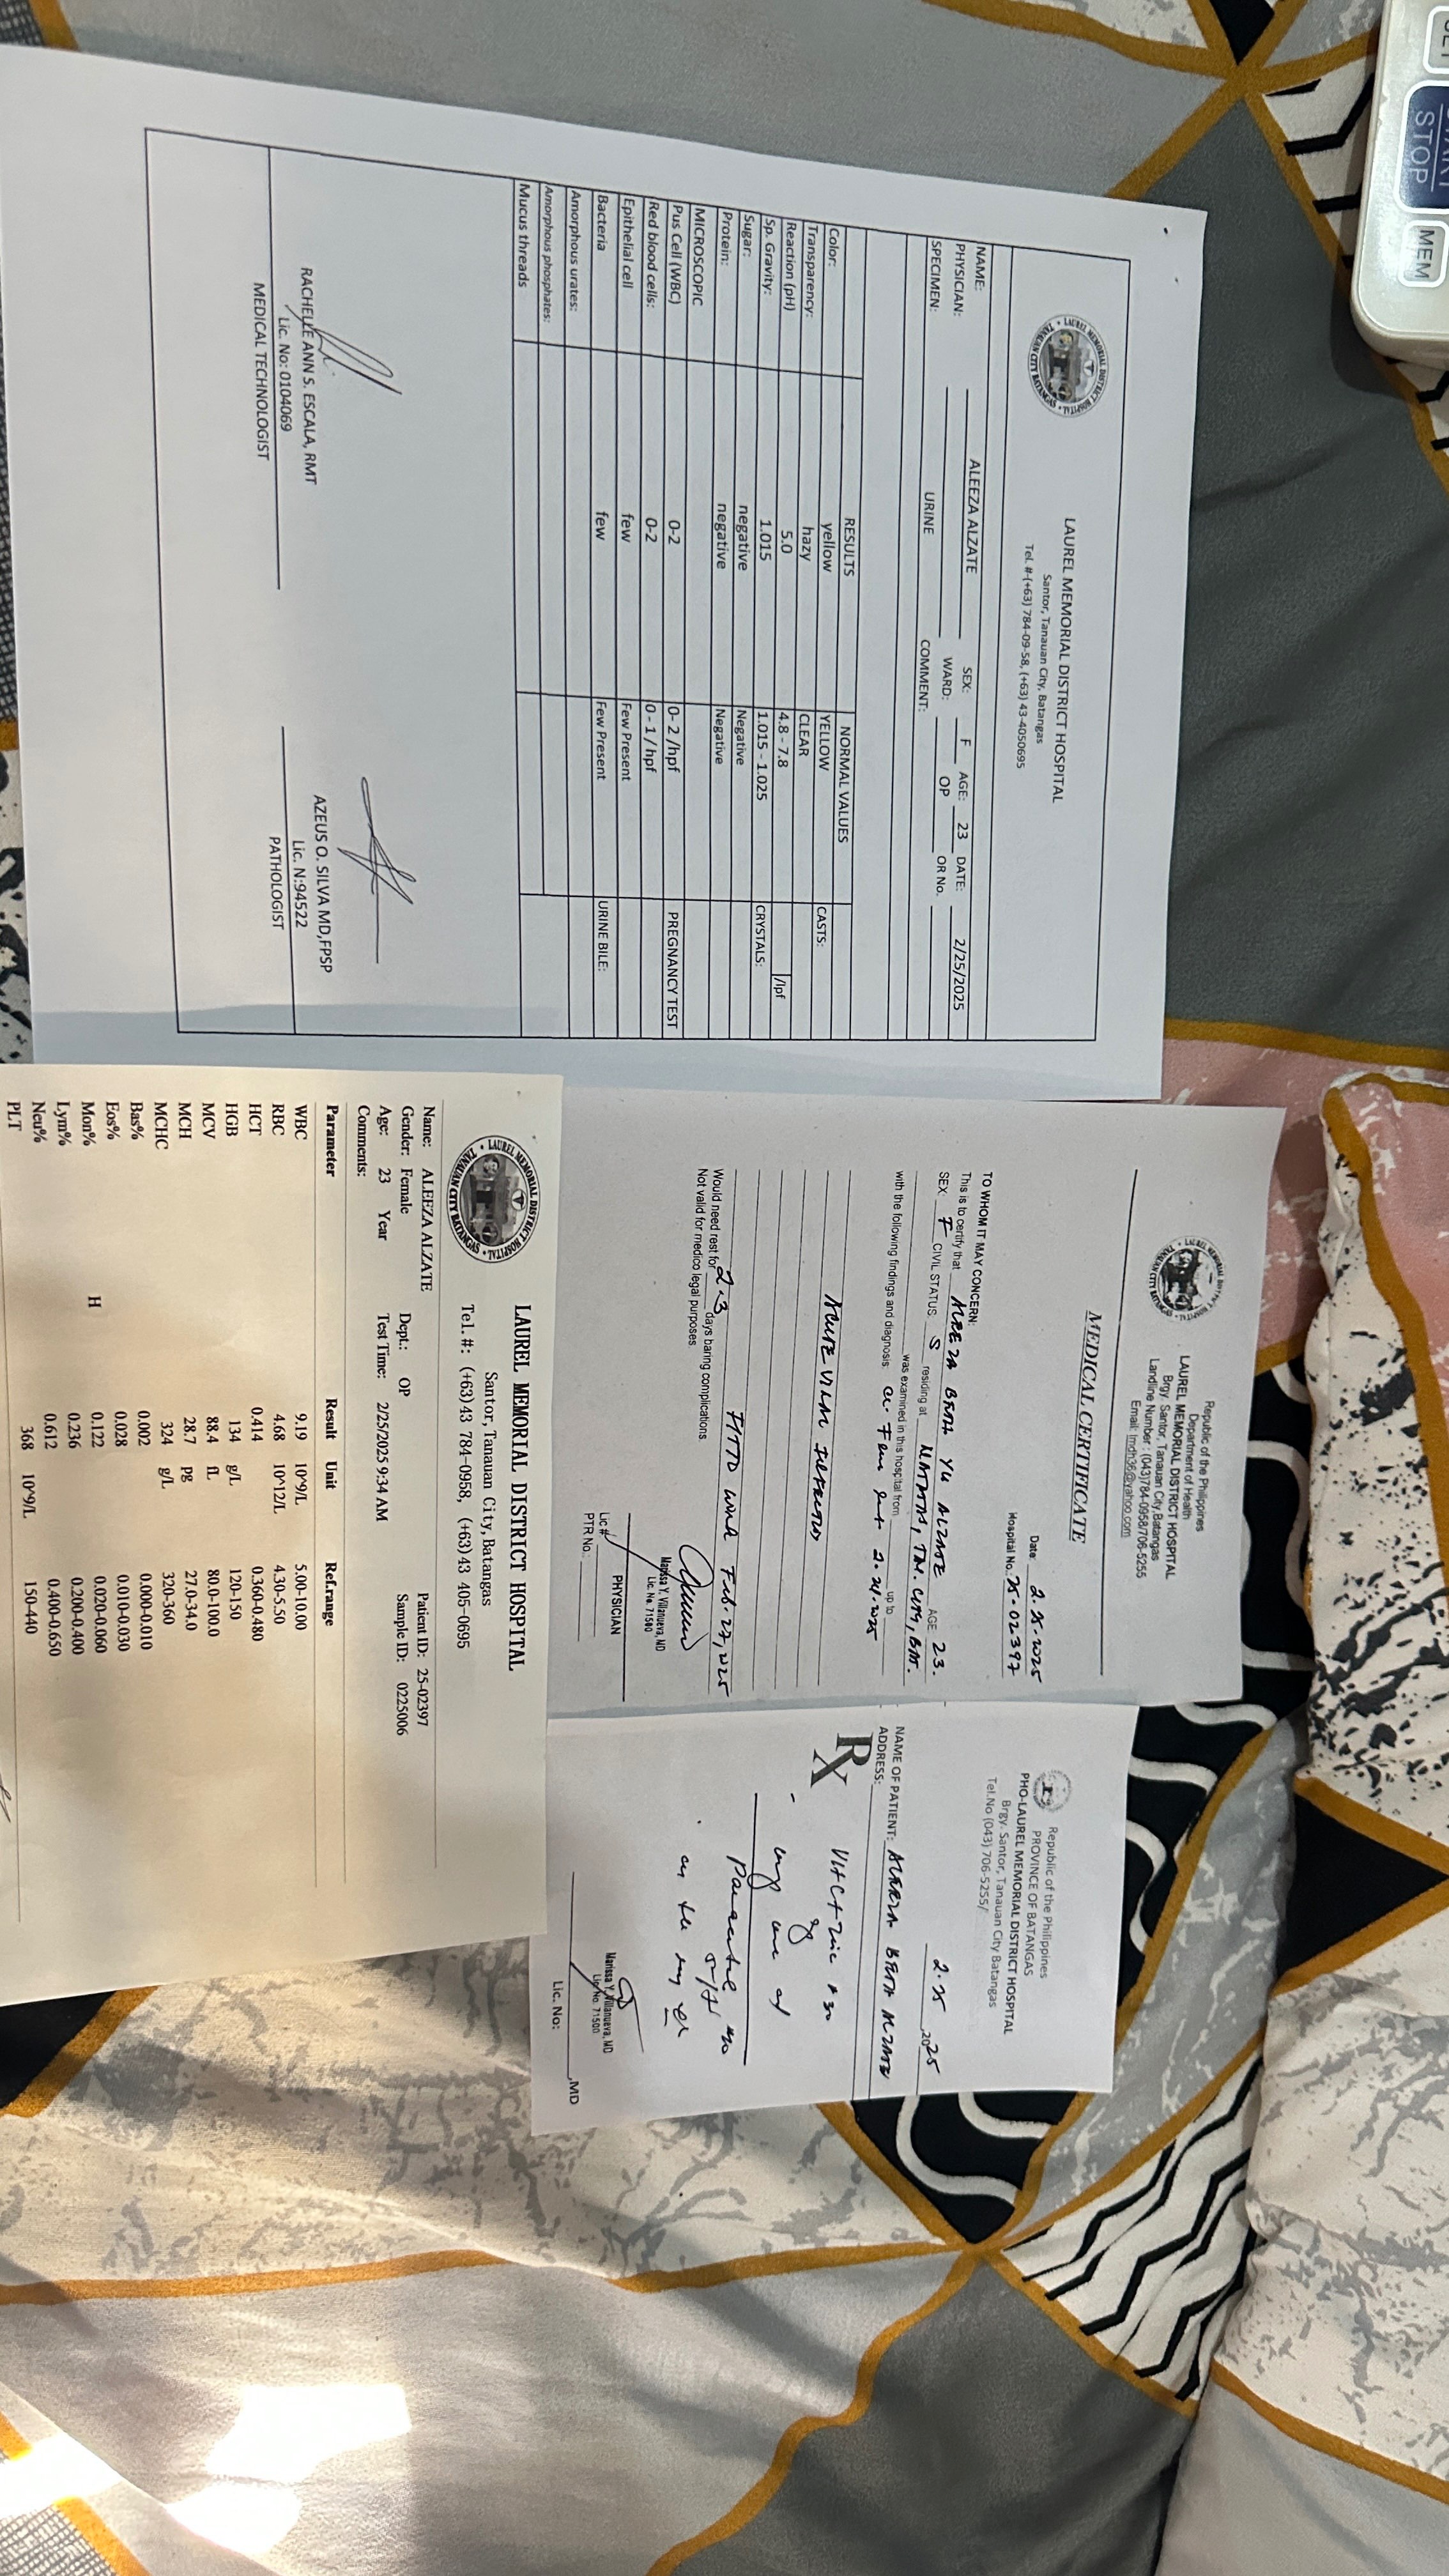 LAUREL MEMORIAL DISTRICT HOSPITAL
Santor, Tanauan City, Batangas
Tel. #-(+63) 784-09-58, (+63) 43-4050695
NAME: ALEEZA ALZATE SEX: F AGE: 23 DATE: 2/25/2025
PHYSICIAN: WARD: OP OR No.
SPECIMEN: URINE COMMENT:
RESULTS NORMAL VALUES
Color: yellow YELLOW CASTS:
Transparency: hazy CLEAR
Reaction (pH) 5.0 4.8 - 7.8 /lpf
Sp. Gravity: 1.015 1.015 - 1.025 CRYSTALS:
Sugar: negative Negative
Protein: negative Negative
MICROSCOPIC
Pus Cell (WBC) 0-2 0- 2 /hpf PREGNANCY TEST
Red blood cells: 0-2 0 - 1 / hpf
Epithelial cell few Few Present
Bacteria few Few Present URINE BILE:
Amorphous urates:
Amorphous phosphates:
Mucus threads
RACHELLE ANN S. ESCALA, RMT
Lic. No: 0104069
MEDICAL TECHNOLOGIST
AZEUS O. SILVA MD,FPSP
Lic. N:94522
PATHOLOGIST
Republic of the Philippines
Department of Health
LAUREL MEMORIAL DISTRICT HOSPITAL
Brgy. Santor, Tanauan City,Batangas
Landline Number : (043)784-0958/706-5255
Email: lmdh36@yahoo.com
MEDICAL CERTIFICATE
Date: 2.25.2025
Hospital No.: 25-02397
TO WHOM IT MAY CONCERN:
This is to certify that ALEEZA BETH YU ALZATE AGE 23.
SEX: F CIVIL STATUS S residing at , TAN. CITY, BAT.
was examined in this hospital from up to
with the following findings and diagnosis:
ACUTE VIRAL INFECTION
FTTD WORK Feb. 27, 2025
Would need rest for 2-3 days baring complications
Not valid for medico legal purposes
Marissa Y. Villanueva, MD
Lic. No. 71500
PHYSICIAN
Lic #
PTR No.:
Republic of the Philippines
PROVINCE OF BATANGAS
PHO-LAUREL MEMORIAL DISTRICT HOSPITAL
Brgy. Santor, Tanauan City Batangas
Tel.No (043) 706-5255/
2.25, 2025
NAME OF PATIENT: ALEEZA BETH ALZATE
ADDRESS:
Rx
Marissa Y. Villanueva, MD
Lic. No. 71500
,MD
Lic. No:
LAUREL MEMORIAL DISTRICT HOSPITAL
Santor, Tanauan City, Batangas
Tel. #: (+63)43 784-0958, (+63)43 405-0695
Name: ALEEZA ALZATE Patient ID: 25-02397
Gender: Female Dept.: OP Sample ID: 0225006
Age: 23 Year Test Time: 2/25/2025 9:34 AM
Comments:
Parameter Result Unit Ref.range
WBC 9.19 10^9/L 5.00-10.00
RBC 4.68 10^12/L 4.30-5.50
HCT 0.414 0.360-0.480
HGB 134 g/L 120-150
MCV 88.4 fL 80.0-100.0
MCH 28.7 pg 27.0-34.0
MCHC 324 g/L 320-360
Bas% 0.002 0.000-0.010
Eos% 0.028 0.010-0.030
Mon% H 0.122 0.020-0.060
Lym% 0.236 0.200-0.400
Neu% 0.612 0.400-0.650
PLT 368 10^9/L 150-440
STOP
MEM